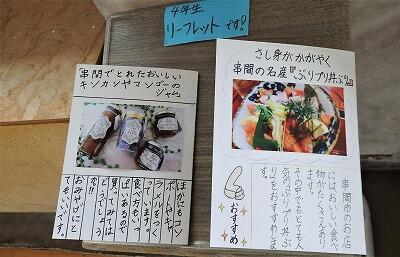 4年生
リーフレットです!
「串間でとれたおいしい
キンカンやマンゴーの
ジャム」
ほかにもコン
ポートやキャ
ラメルをつく
っています。
食べ方もいっ
ぱいあるので
買ってみては
どうでしょう
か?
おみやげにと
てもいいです。
さし身がかがやく
串間の名産『ぶりプリ丼ぶり』
串間市のお店
にはおいしい食べ
物がたくさんあり
ます。
その中でもとても人
気のぶりプリ丼ぶ
りをおすすめしま
す
おすすめ